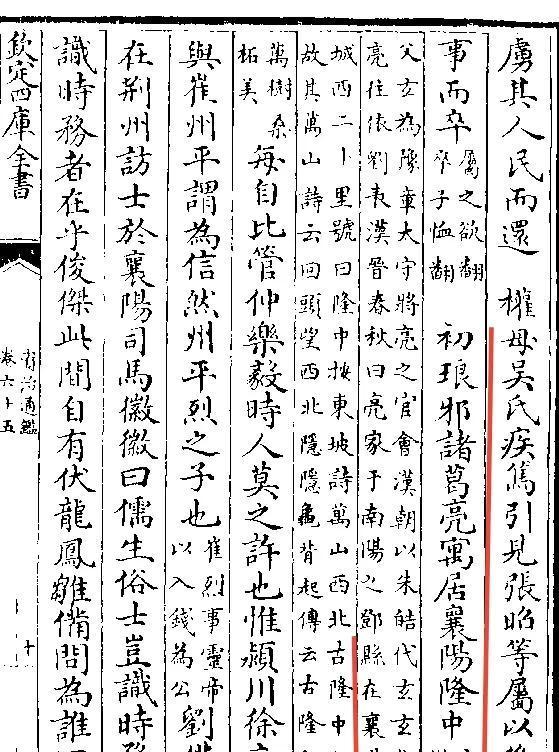 虜其人民而還　權母吳氏疾篤引見張昭等屬以
事而卒
屬之欲翻
卒子恤翻
初琅邪諸葛亮寓居襄陽隆中
父玄為豫章太守將亮之官會漢朝以朱皓代玄玄
亮往依劉表漢晉春秋曰亮家于南陽之鄧縣在襄
城西二十里號曰隆中按東坡詩萬山西北古隆中
故其萬山詩云回頭望西北隱隱龜背起傳云古隆
萬樹桑
柘美
每自比管仲樂毅時人莫之許也惟潁川徐
與崔州平謂為信然州平烈之子也
崔烈事靈帝
以入錢為公
劉
在荆州訪士於襄陽司馬徽徽曰儒生俗士豈識時
識時務者在乎俊傑此間自有伏龍鳳雛備問為誰
欽定四庫全書
資治通鑑
卷六十五
十